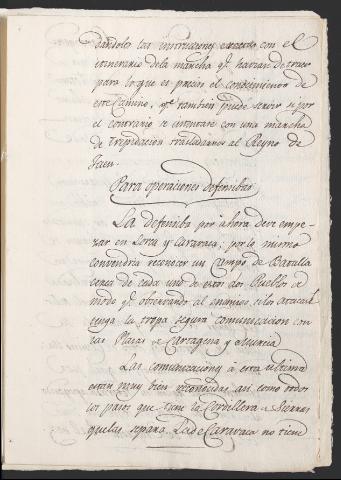 dandolos las instruciones exactas con el
itinerario dela marcha qe. habian de traer
para loque es precisa el conocimiento de
este Camino, qe. tambien puede servir si por
el contrario se intentare con una marcha
de trepidacion trasladarnos al Reyno de
Jaen.
Para operaciones defensibas
La defensiba por ahora deve empe-
zar en Lorca y Caravaca; por lo mismo
convendria reconocer un Campo de Batalla
cerca de cada uno de estos dos Pueblos de
modo qe. observando al enemigo, si los atacase
tenga la tropa segura comunicacion con
las Plazas de Cartagena y Murcia
Las comunicacions à esta ultima
estan muy bien reconocidas, asi como todos
los pasos que tiene la Cordillera de Sierras
quelas separa. La de Caravaca no tiene